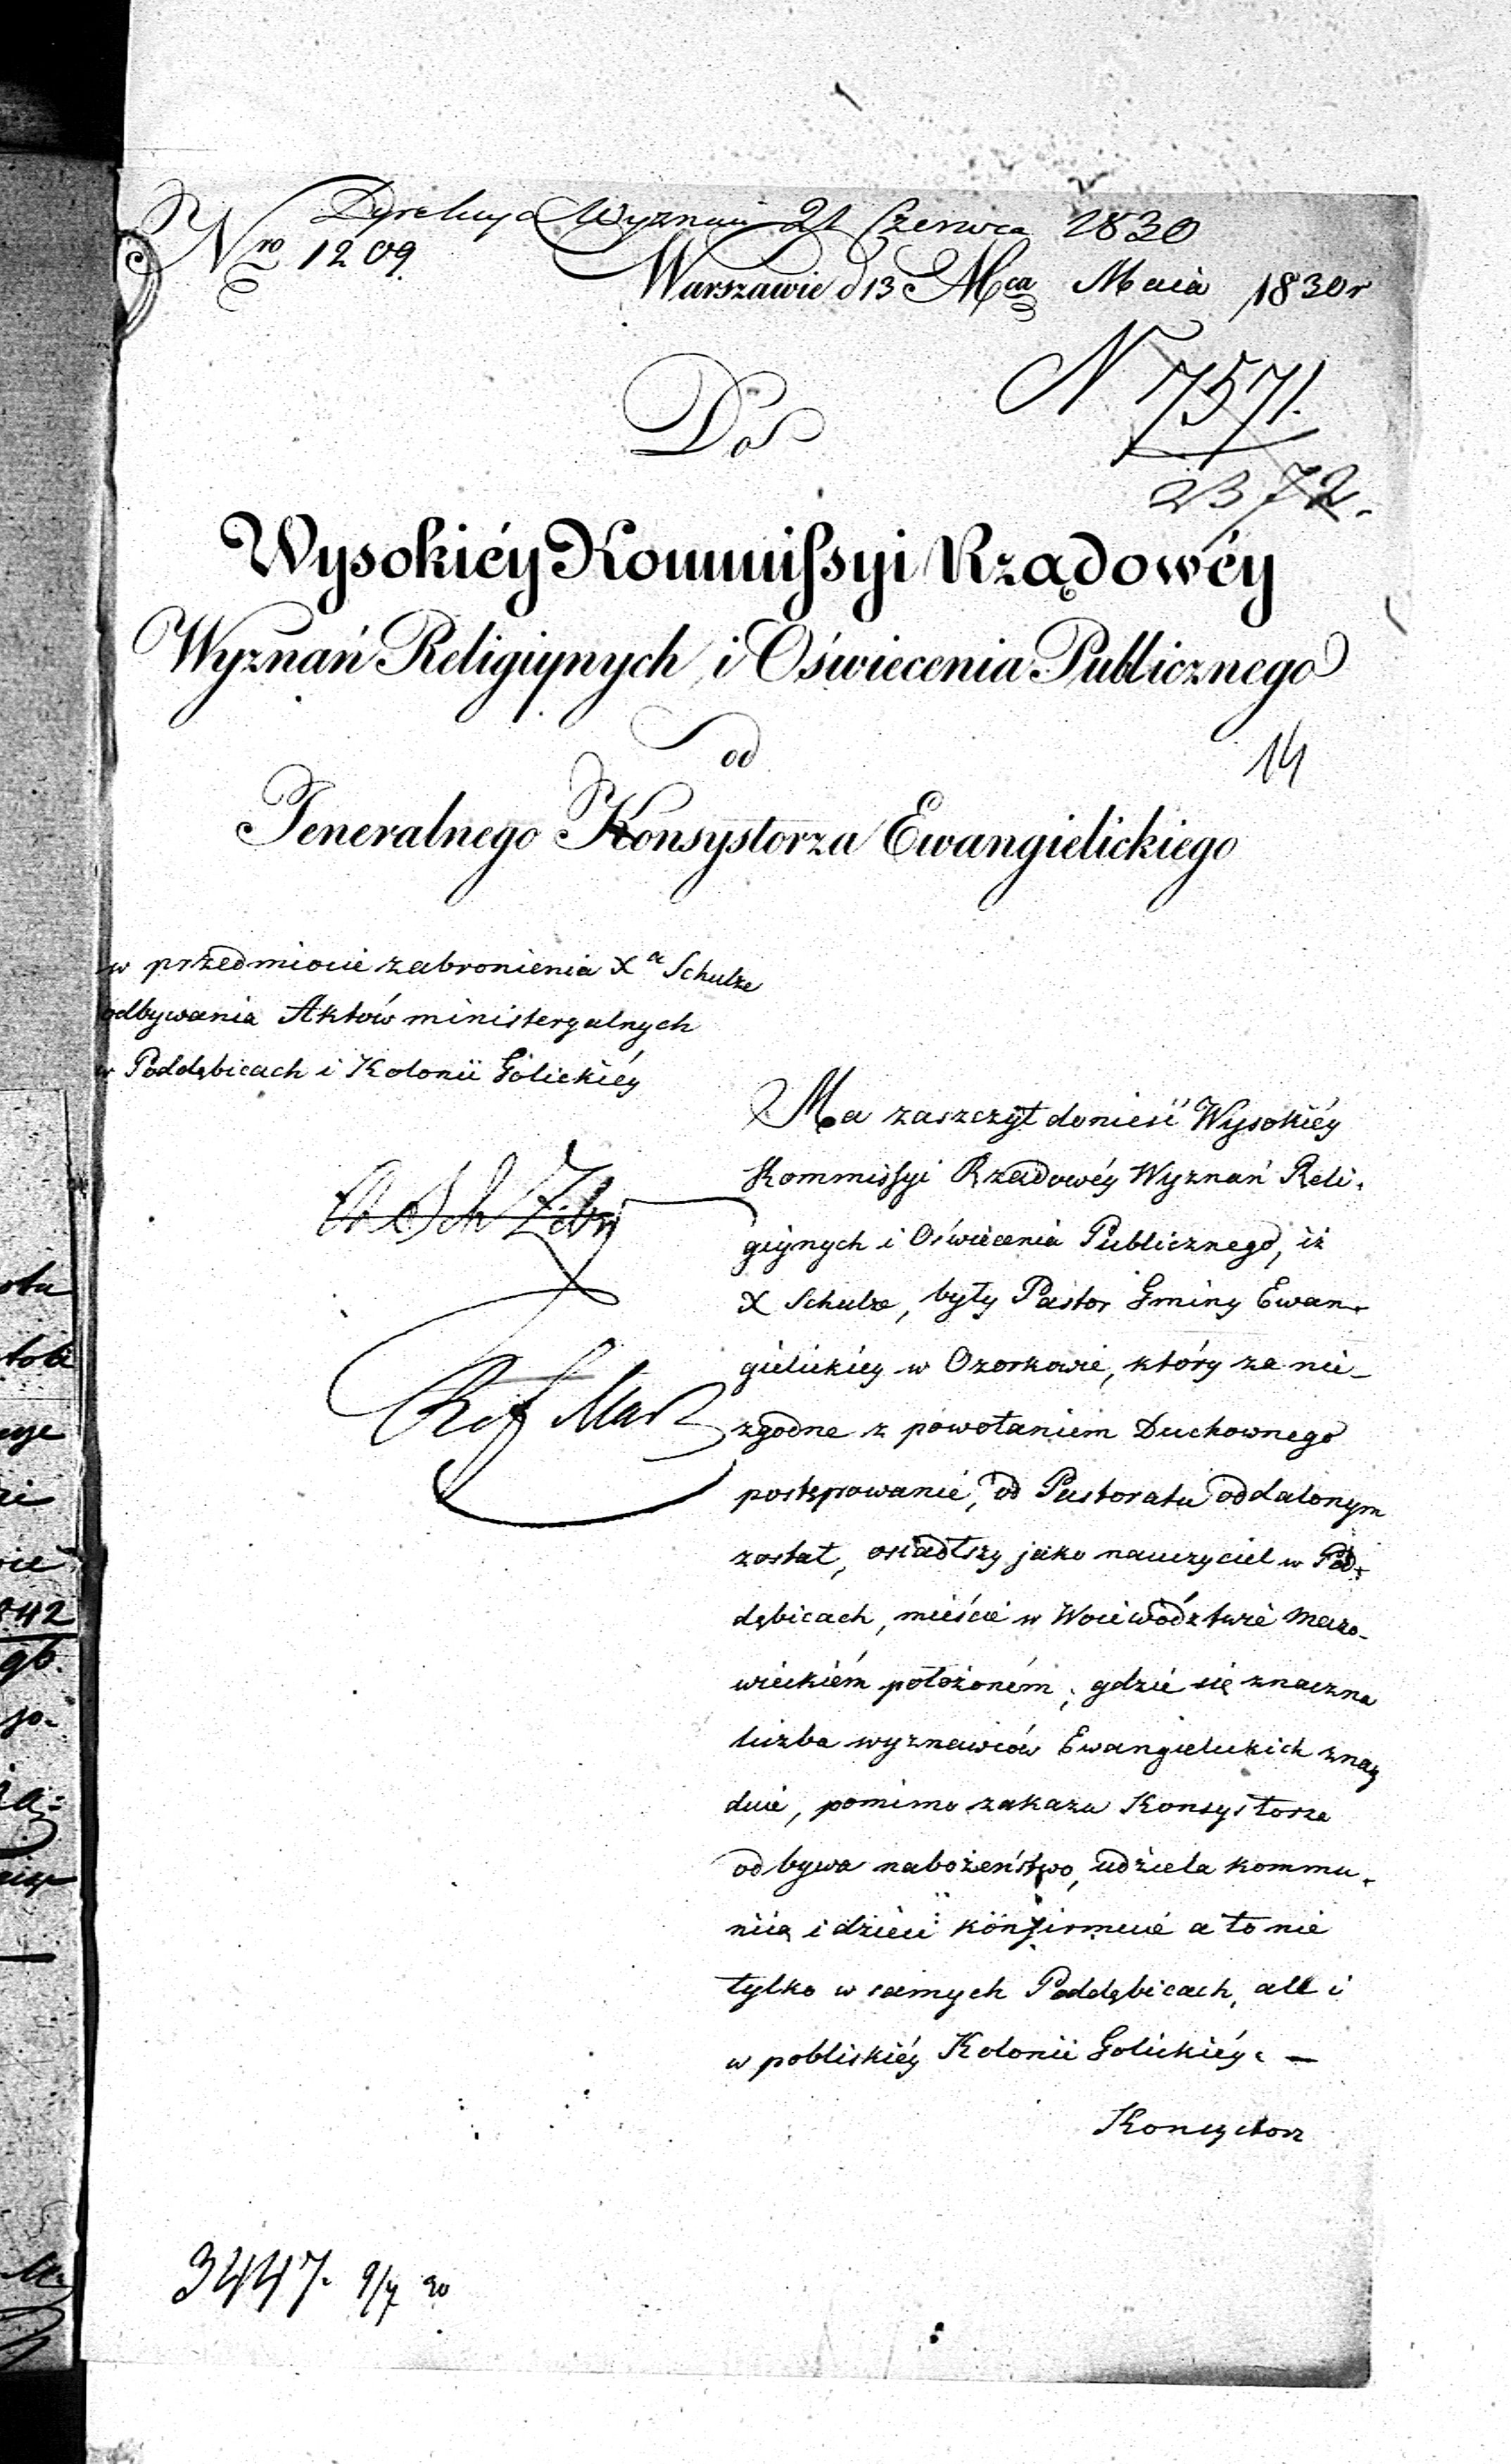 Dyrekcya Wyznań 21 Czerwca 1830
Nro 1209.
Warszawie d 13 Mca Maia 1830 r
N 7571.
Do
2372.
Wysokiéy Kommissyi Rządowéy
Wyznań Religiynych i Oświecenia Publicznego
od
14
Jeneralnego Konsystorza Ewangielickiego
w przedmiocie zabronienia Xa Schulze
odbywania Aktów ministeryalnych
w Poddębicach i Kolonii Golickiéy
Ma zaszczyt donieść Wysokiéy
Kommissyi Rządowéy Wyznań Reli-
giynych i Oświecenia Publicznego, iż
X Schulze, były Pastor Gminy Ewan-
gielickiey w Ozorkowie, który za nie-
zgodne z powołaniem Duchownego
postępowanie, od Pastoratu oddalonym
został, osiadłszy jako nauczyciel w Pod-
dębicach, mieście w Woiewództwie Mazo-
wieckiém położoném, gdzie się znaczna
liczba wyznawców Ewangielickich znay
duie, pomimo zakazu Konsystorza
odbywa nabożeństwo, udziela kommu-
niią i dzieci konfirmuie a to nie
tylko w samych Poddębicach, ale i
w pobliskiéy Kolonii Golickiéy. —
Konsystorz
3447.